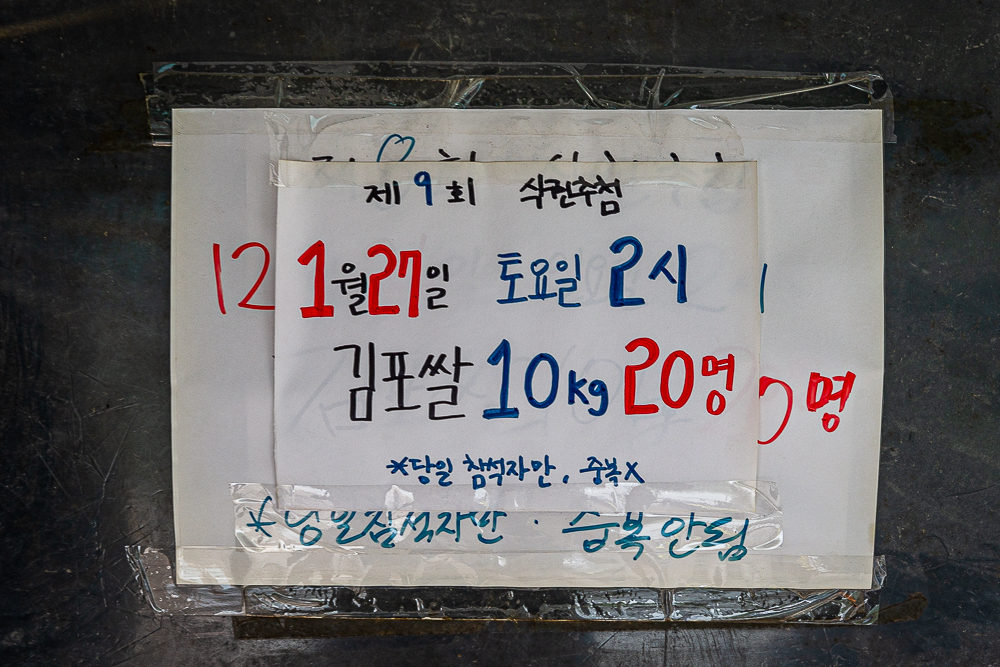 제 9 회 식권추첨
12
1월27일 토요일 2시
김포쌀 10kg 20명
명
*당일 참석자만, 중복X
*당일참석자만. 중복안됨